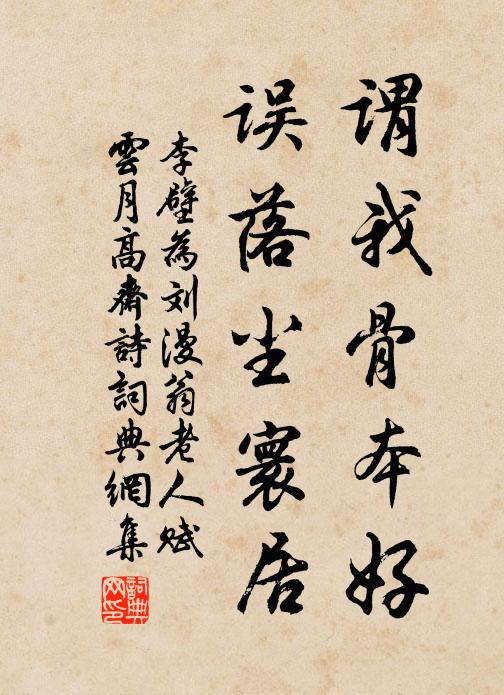 谓我骨本好
误落尘寰居
李壁為刘漫翁老人赋
雲月高齋詩詞典網集
詞典
网印